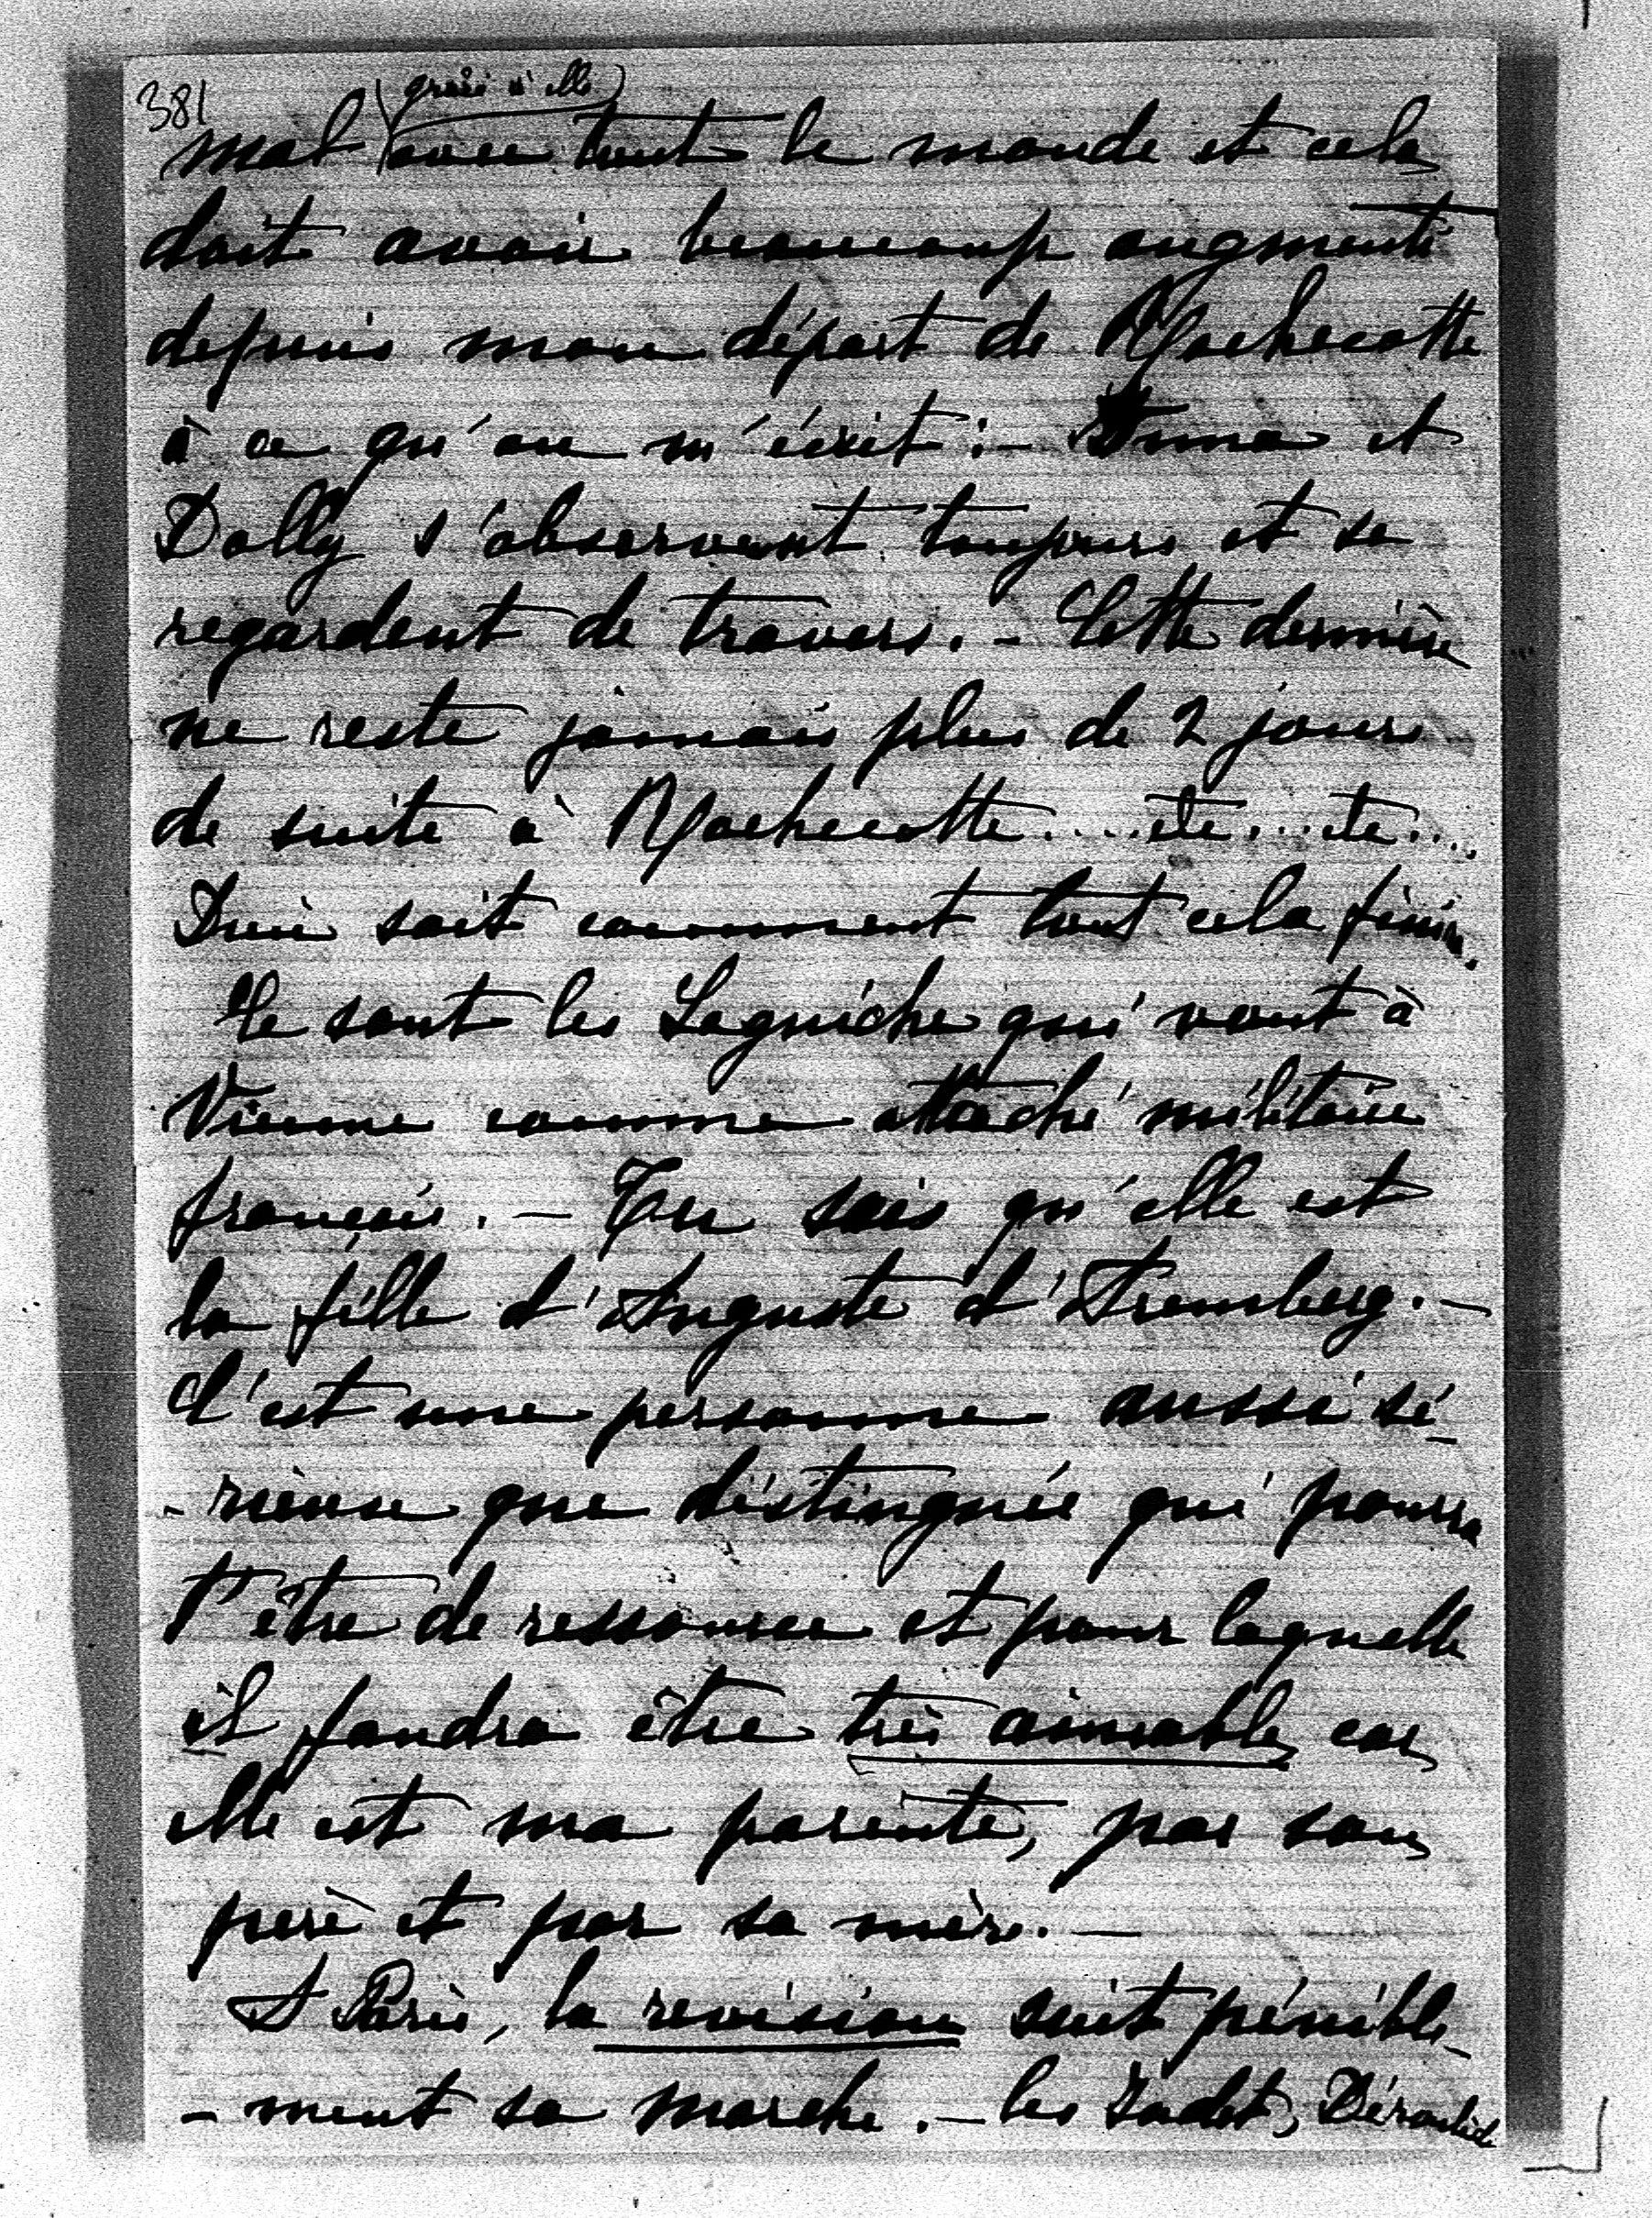 381
(grâce à elle)
mal avec tout le monde et cela
doit avoir beaucoup augmenté
depuis mon départ de Rochecotte
à ce qu'on m'écrit :- Anna et
Dolly s'observent toujours et se
regardent de travers. - Cette dernière
ne reste jamais plus de 2 jours
de suite à Rochecotte.... etc... etc....
Dieu sait comment tout cela finira.
Ce sont les Laguiche qui vont à
Vienne comme attaché militaire
français. - Tu sais qu'elle est
la fille d'Auguste d'Aremberg. -
C'est une personne aussi sé-
-rieuse que distinguée qui pourra
t'être de ressource et pour laquelle
il faudra être très aimable, car
elle est ma parente, par son
père et par sa mère. -
A Paris, la revision suit pénible-
-ment sa marche. - les Déroulède